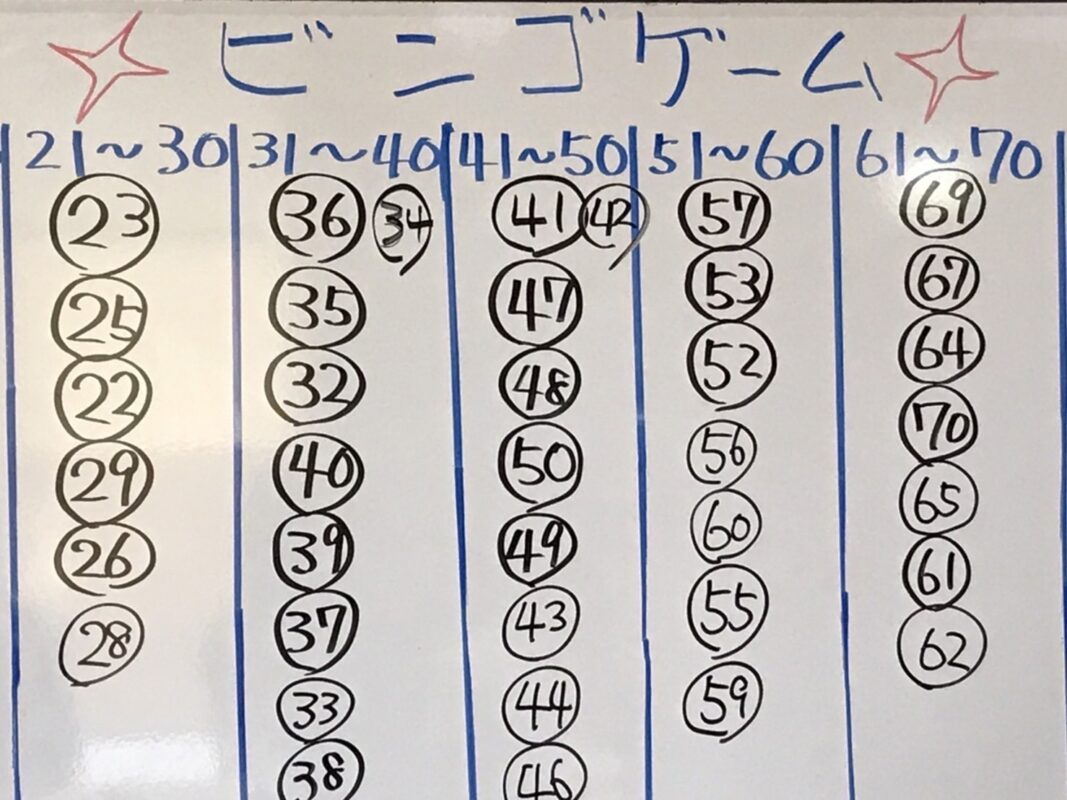 ビンゴゲーム
21~30 31~40 41~50 51~60 61~70
23 36 34 41 42 57 69
25 35 47 53 67
22 32 48 52 64
29 40 50 56 70
26 39 49 60 65
28 37 43 55 61
33 44 59 62
38 46